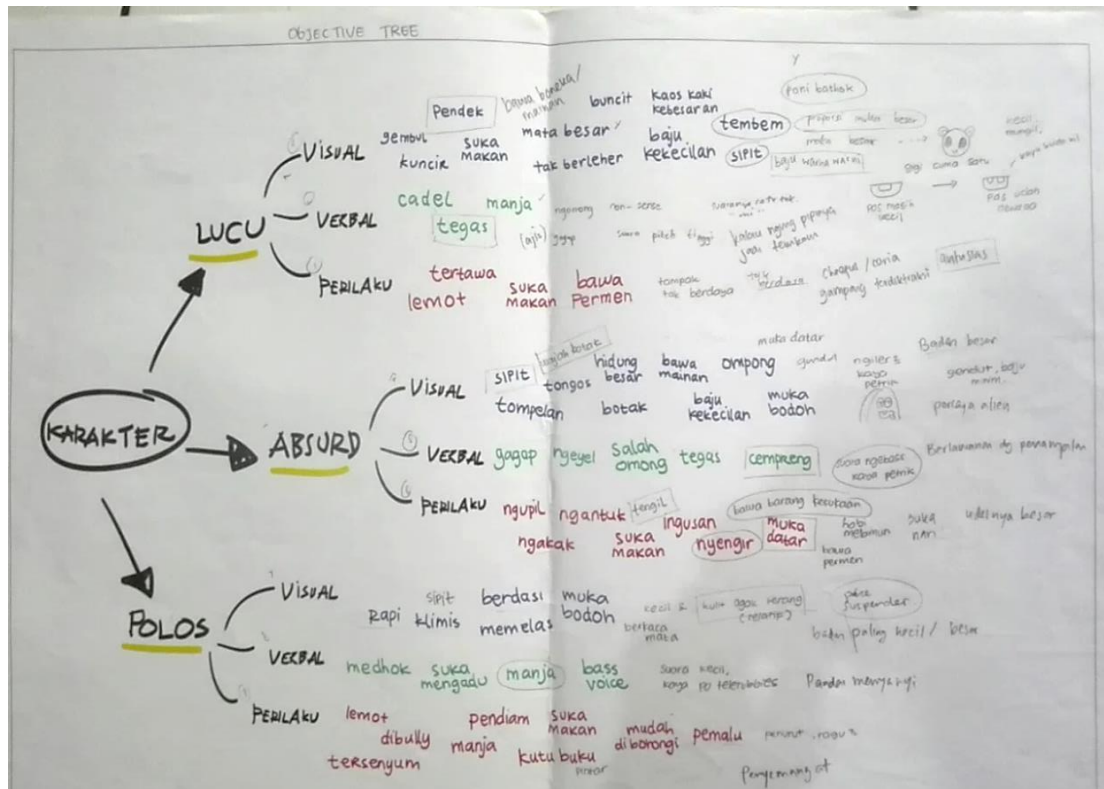 OBJECTIVE TREE
KARAKTER
LUCU
VISUAL
Pendek bawa boneka/ mainan buncit kaos kaki kebesaran poni bathok
gembul suka makan mata besar baju kekecilan tembem proporsi muka besar
kuncir tak berleher sipit mata besar
baju warna warni gigi cuma satu
pas masih kecil
VERBAL
cadel manja ngomong non-sense
tegas gagap suara pitch tinggi kalau ngung pipinya
jadi
PERILAKU
tertawa suka makan bawa permen tampak tak berdaya ceria antusias
lemot gampang terdistraksi
ABSURD
VISUAL
sipit botak hidung besar bawa mainan ompong muka datar gundul Badan besar
tongos gendut, baju mini
tompelan botak baju kekecilan muka bodoh alien
VERBAL
gagap ngeyel salah omong tegas cempreng suara ngebass Berlawanan dg penampilan
PERILAKU
ngupil ngantuk tengil ingusan bawa barang kesukaan muka datar hobi melamun suka nari udelnya besar
ngakak suka makan nyengir bawa permen
POLOS
VISUAL
Rapi sipit klimis berdasi memelas muka bodoh kecil & kurus agak kerempeng pake suspender
berkaca mata badan paling kecil / besar
VERBAL
medhok suka mengadu manja bass voice suara kecil, kaya po teletubbies Pandai menyanyi
PERILAKU
lemot pendiam suka makan mudah dibohongi pemalu penurut
dibully manja kutu buku
tersenyum pintar
Penyemangat